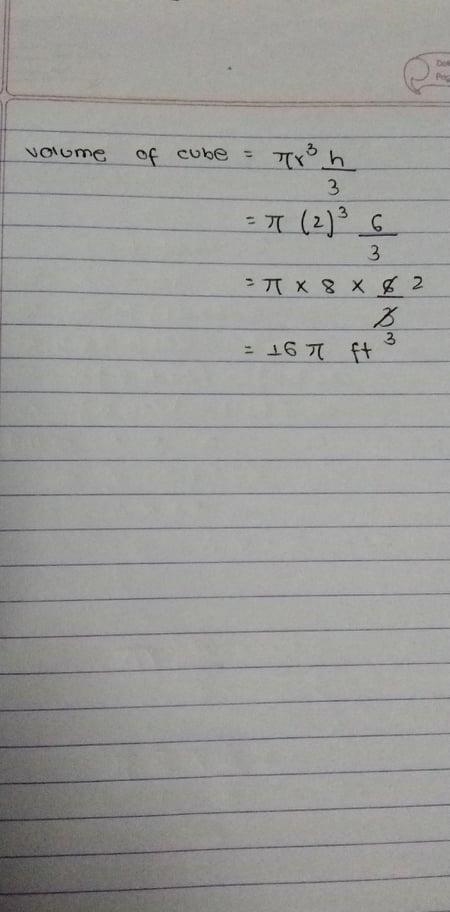 volume of cube = πr³ h/3
= π (2)³ 6/3
= π x 8 x 6/3 2
= 16 π ft³